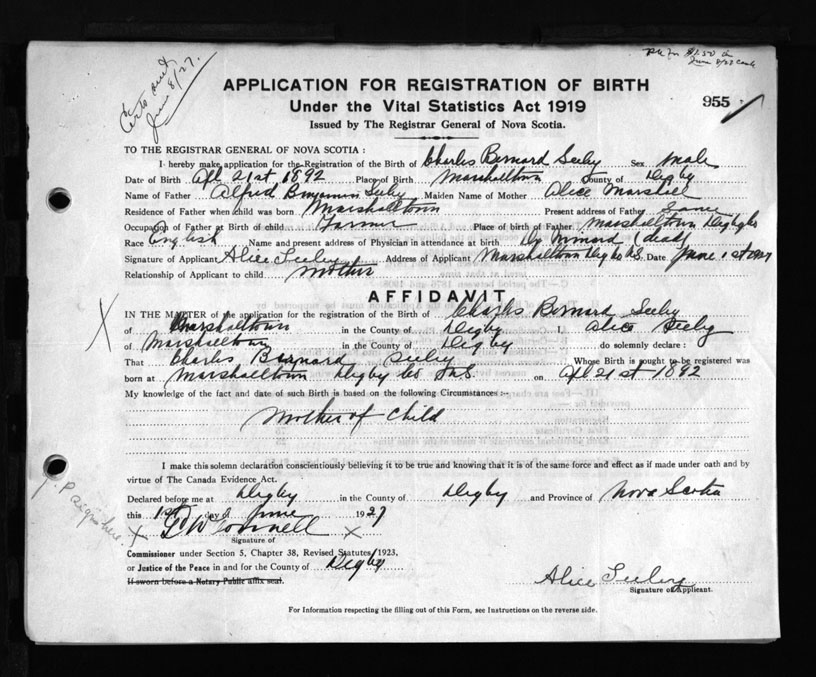 Certs sent June 8/27.
$1.50
June 8/27 Cash
APPLICATION FOR REGISTRATION OF BIRTH
Under the Vital Statistics Act 1919
955
Issued by The Registrar General of Nova Scotia.
TO THE REGISTRAR GENERAL OF NOVA SCOTIA :
I hereby make application for the Registration of the Birth of Charles Bernard Seeley Sex male
Date of Birth Apl 21st 1892 Place of Birth Marshalltown County of Digby
Name of Father Alfred Benjamin Seeley Maiden Name of Mother Alice Marshall
Residence of Father when child was born Marshalltown Present address of Father Same
Occupation of Father at Birth of child Farmer Place of birth of Father Marshalltown Digby Co
Race English Name and present address of Physician in attendance at birth (dead)
Signature of Applicant Alice Seeley Address of Applicant Marshalltown Digby Co N.S. Date June 1st 1927
Relationship of Applicant to child mother
AFFIDAVIT
IN THE MATTER of the application for the registration of the Birth of Charles Bernard Seeley
of Marshalltown in the County of Digby I, Alice Seeley
of Marshalltown in the County of Digby do solemnly declare :
That Charles Bernard Seeley Whose Birth is sought to be registered was
born at Marshalltown Digby Co N.S. on Apl 21st 1892
My knowledge of the fact and date of such Birth is based on the following Circumstances :-
Mother of Child
I make this solemn declaration conscientiously believing it to be true and knowing that it is of the same force and effect as if made under oath and by
virtue of The Canada Evidence Act.
Declared before me at Digby in the County of Digby and Province of Nova Scotia
this 1st day of June 1927
J. P sign here.
X X
Signature of
Commissioner under Section 5, Chapter 38, Revised Statutes 1923,
or Justice of the Peace in and for the County of Digby
If sworn before a Notary Public affix seal.
Alice Seeley
Signature of Applicant.
For Information respecting the filling out of this Form, see Instructions on the reverse side.